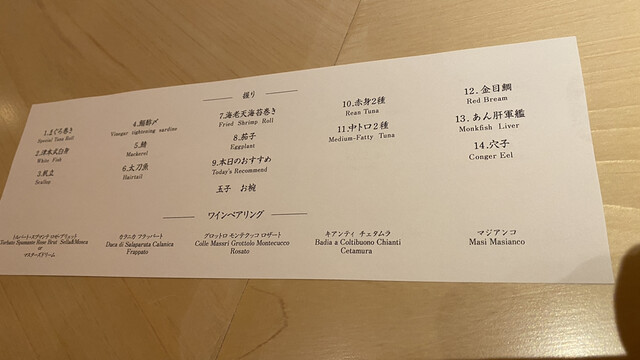 握り
1.まぐろ巻き
Special Tuna Roll
2.津本式白身
White Fish
3.帆立
Scallop
4.鰯酢〆
Vinegar tightening sardine
5.鯖
Markerel
6.太刀魚
Hairtail
7.海老天海苔巻き
Fried Shrimp Roll
8.茄子
Eggplant
9.本日のおすすめ
Today's Recommend
玉子 お椀
10.赤身2種
Rean Tuna
11.中トロ2種
Medium-Fatty Tuna
12.金目鯛
Red Bream
13.あん肝軍艦
Monkfish Liver
14.穴子
Conger Eel
ワインペアリング
トルバート・スプマンテ ロゼ・ブリュット
Torbato Spumante Rose Brut Sella&Mosca
or
マスターズドリーム
カラニカ フラッパート
Duca di Salaparuta Calanica
Frappato
グロットロ モンテクッコ ロザート
Colle Massri Grottolo Montecucco
Rosato
キアンティ チェタムラ
Badia a Coltibuono Chianti
Cetamura
マジアンコ
Masi Masianco